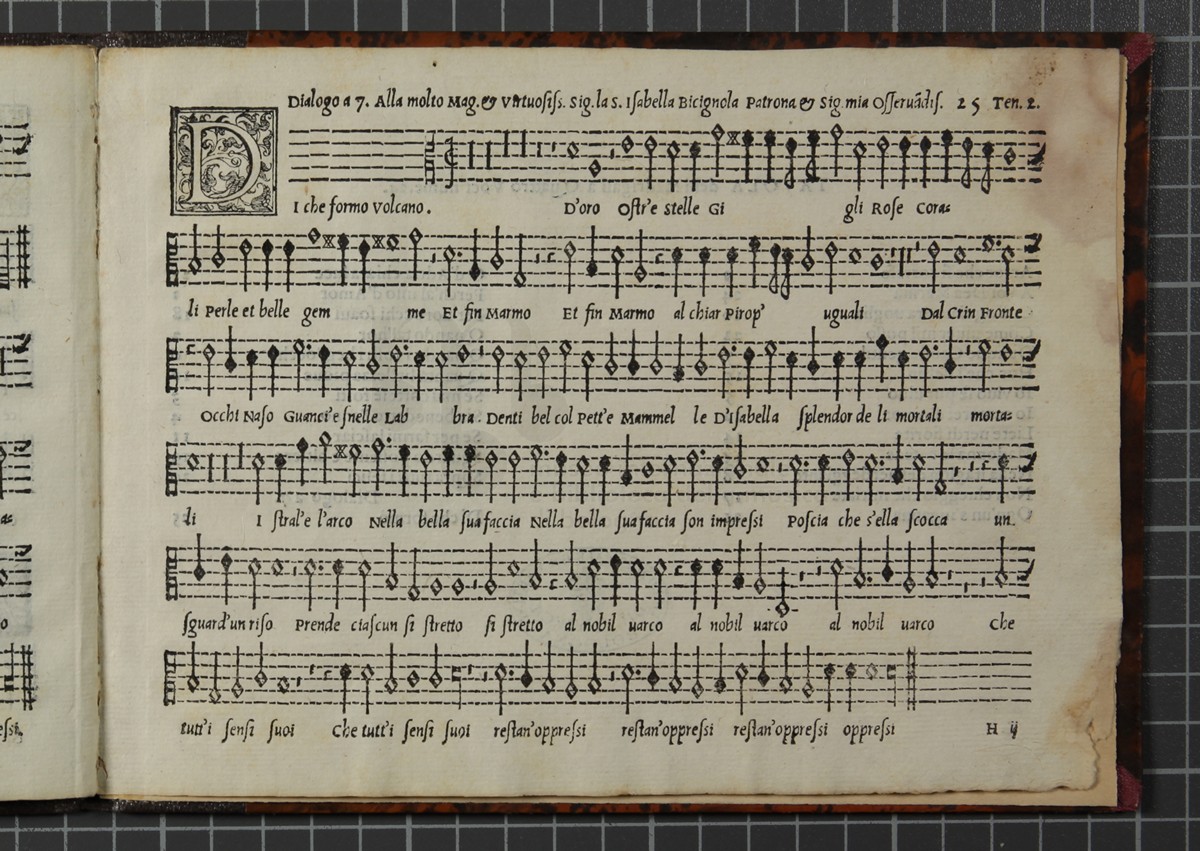 Dialogo a 7. Alla molto Mag. & Virtuosiss. Sig. la S. Isabella Bicignola Patrona & Sig. mia Osseruãdis. 25 Ten. 2.
DI che formo Volcano. D'oro Ostr'e Stelle Gi gli Rose Cora=
li Perle et belle gem me Et fin Marmo Et fin Marmo al chiar Pirop' uguali Dal Crin Fronte
Occhi Naso Guanci'e snelle Lab bra. Denti bel col Pett'e Mammel le D'Isabella splendor de li mortali morta=
li I stral'e l'arco Nella bella sua faccia Nella bella sua faccia son impressi Poscia che s'ella scocca un
sguard'un riso Prende ciascun sì stretto sì stretto al nobil uarco al nobil uarco al nobil uarco Che
tutt'i sensi suoi Che tutt'i sensi suoi restan'oppressi restan'oppressi restan'oppressi oppressi H ij